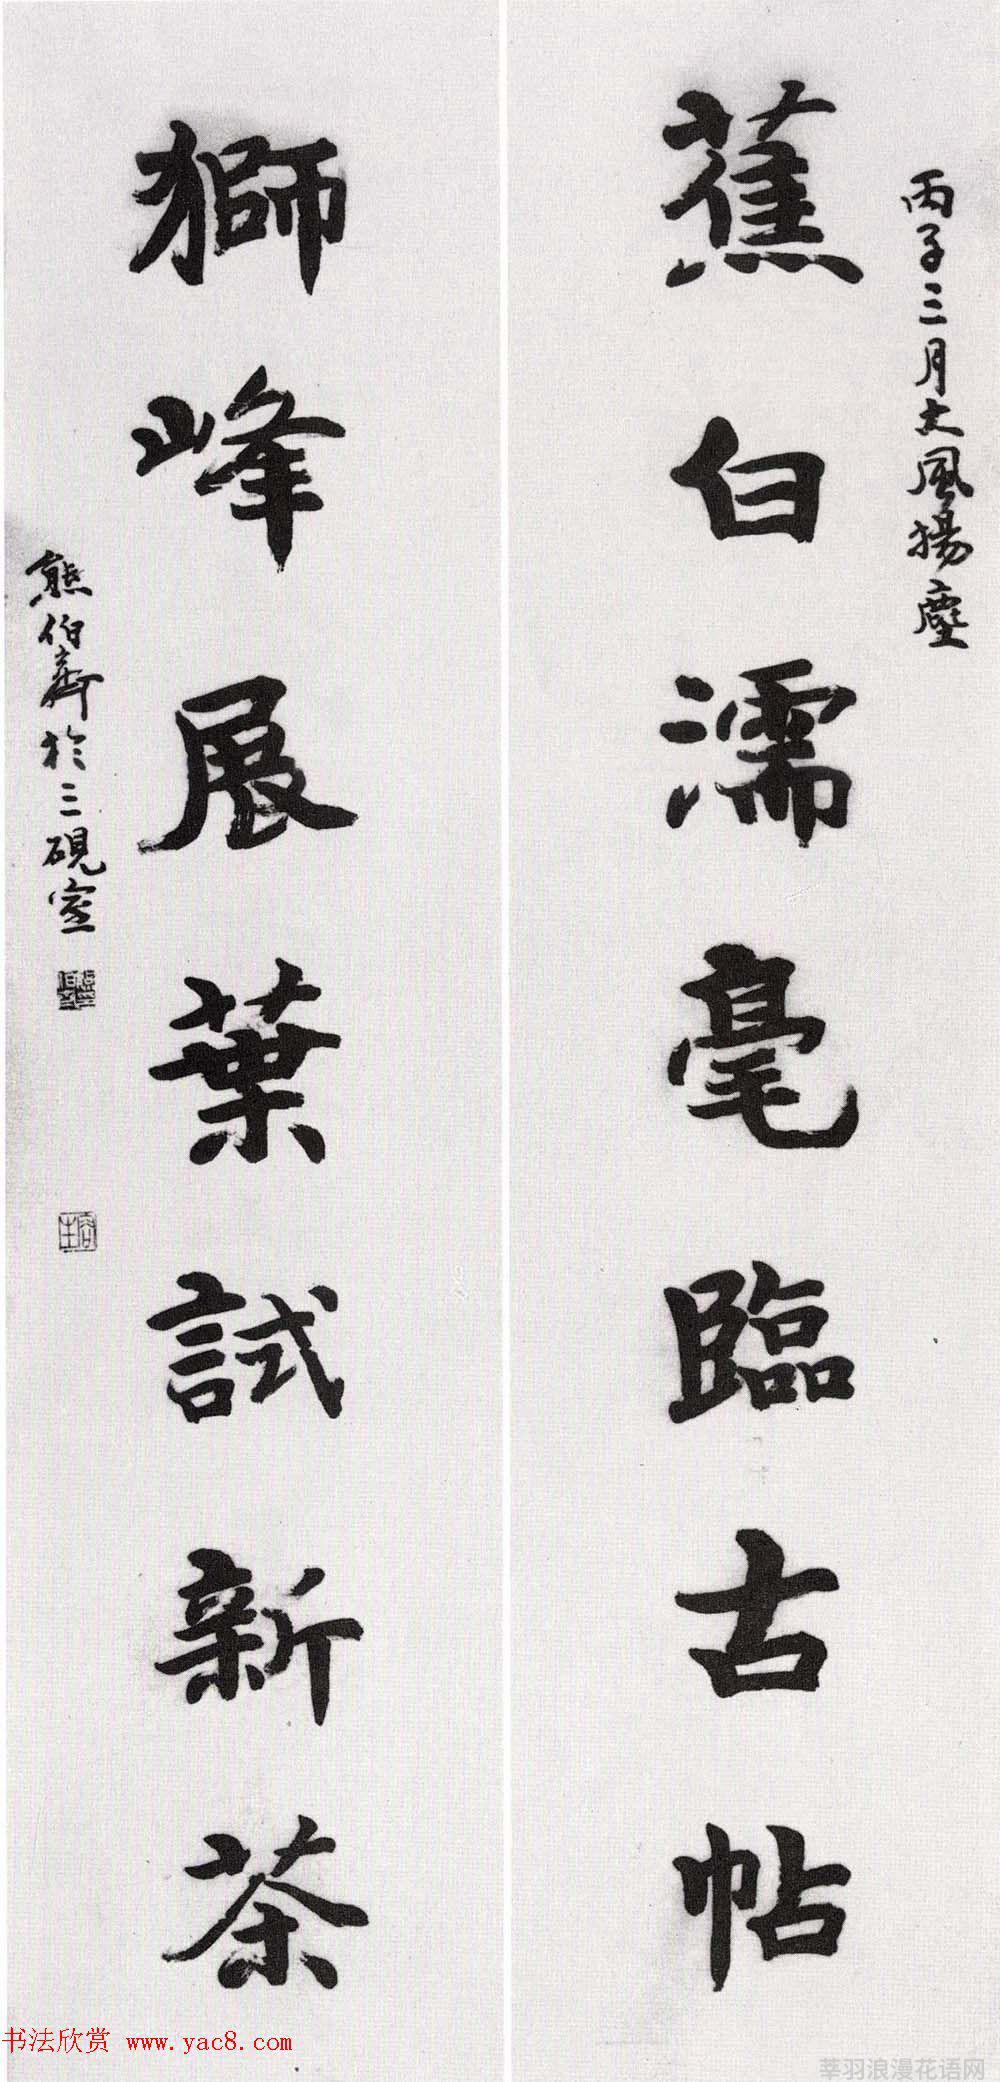 丙子三月大風揚塵
蕉白濡毫臨古帖
獅峰展葉試新茶
熊伯齊於三硯室
书法欣赏 www.yac8.com
莘羽浪漫花语网